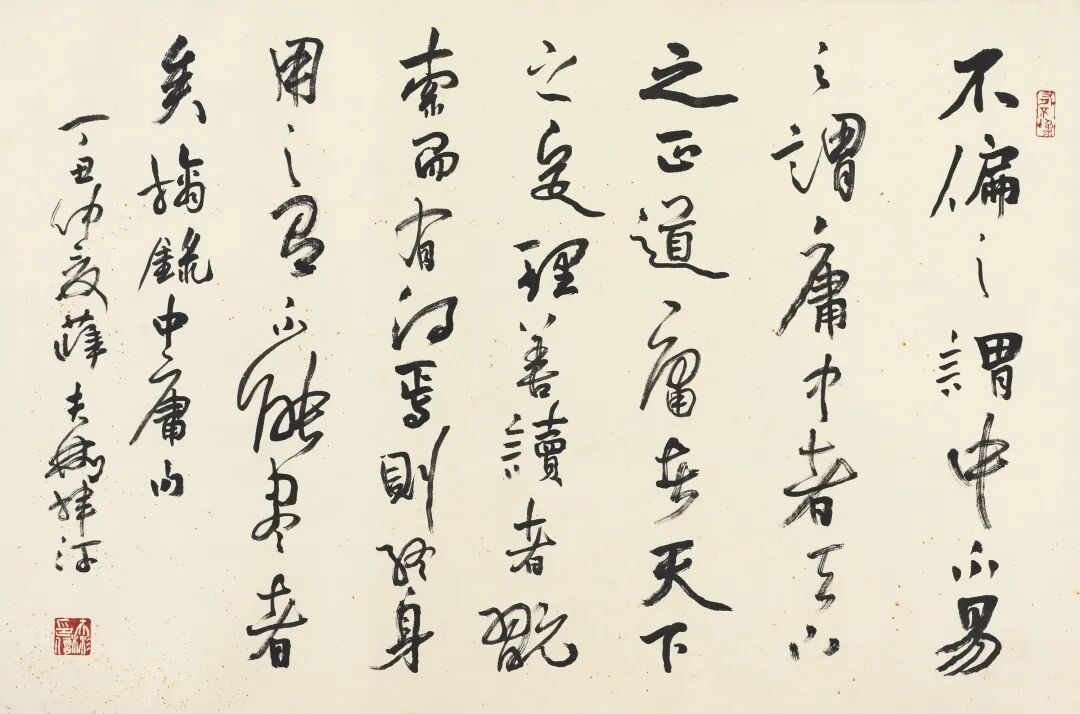 不偏之謂中不易
之謂庸中者天下
之正道庸者天下
之定理善讀者翫
索而有得焉則終身
用之有不能盡者
矣摘錄中庸句
丁丑仲夏薛夫彬